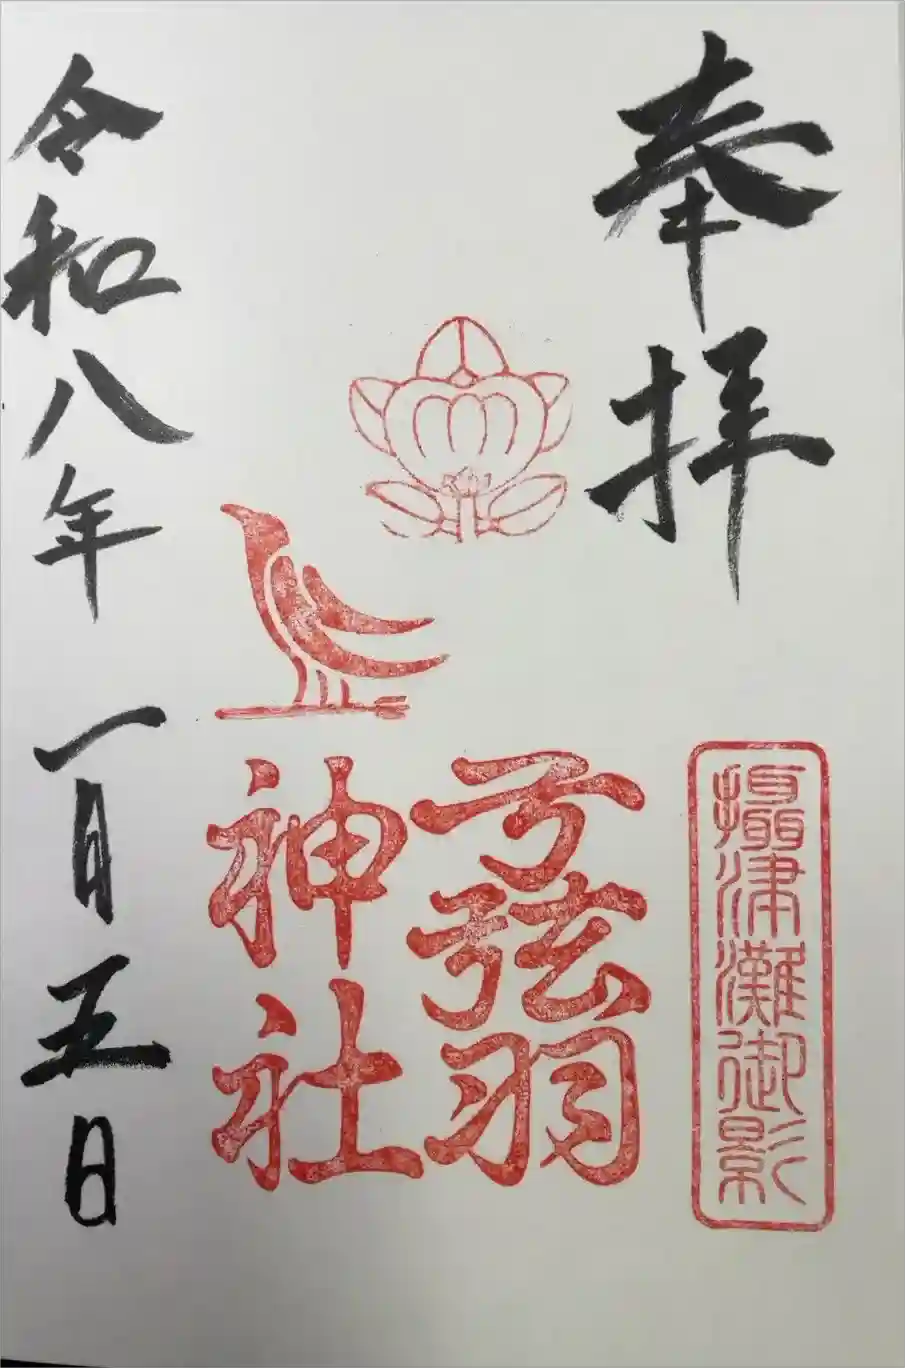 奉拝
攝津灘御影
弓弦羽
神社
令和八年 一月五日